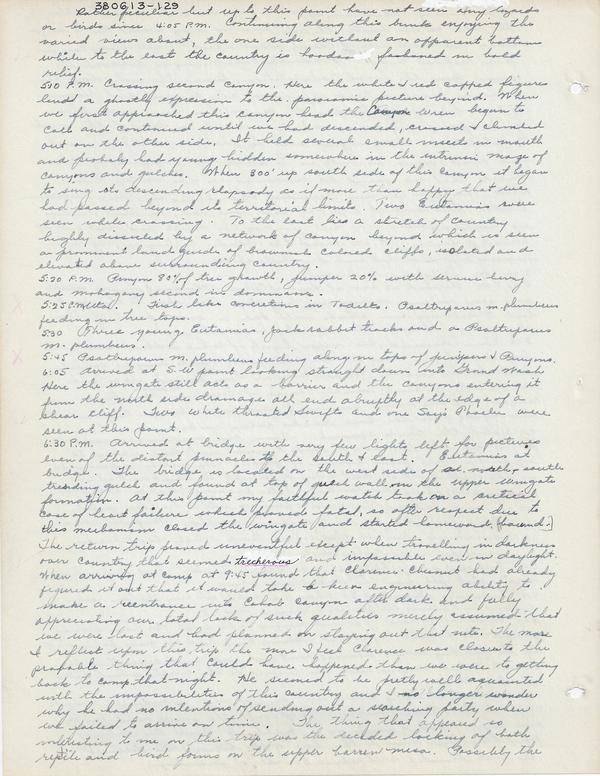 380613-129
Rather peculiar but up to this point have not seen any lizards
or birds since 4:05 P.M. Continuing along this bench enjoying the
varied views about, the one side without an apparent bottom
while to the east the country is hoodoo fashioned in bold
relief.
5:10 P.M. Crossing second canyon. Here the white & red capped figures
lend a ghostly expression to the panoramic picture beyond. When
we first approached this canyon head the Canyon Wren began to
call and continued until we had descended, crossed & climbed
out on the other side. It held several small insects in mouth
and probably had young hidden somewhere in the intrinsic maze of
canyons and gulches. When 300' up south side of this canyon it began
to sing its descending rhapsody as if more than happy that we
had passed beyond its territorial limits. Two Eutamias were
seen while crossing. To the east lies a stretch of country
highly dissected by a network of canyon beyond which is seen
a prominent land guide of brownish colored cliffs, isolated and
elevated above surrounding country.
5:20 P.M. Pinyon 80% of tree growth, juniper 20% with service berry
and mahogany second in dominance.
5:25 P.M. Fish like concretions in Todilto. Psaltriparus m. plumbeus
feeding in tree tops.
5:30 Three young Eutamias, Jack rabbit tracks and a Psaltriparus
m. plumbeus.
5:45 Psaltriparus m. plumbeus feeding along in tops of junipers & Pinyons.
6:05 Arrived at S.W. point looking straight down into Grand Wash.
Here the wingate still acts as a barrier and the canyons entering it
from the north side drainage all end abruptly at the edge of a
shear cliff. Two White throated Swifts and one Say's Phoebe were
seen at this point.
6:30 P.M. Arrived at bridge with very few lights left for pictures
even of the distant pinnacles to the south & east. Eutamias at
bridge. The bridge is located on the west side of a north & south
trending gulch and found at top of gulch wall in the upper wingate
formation. At this point my faithful watch took on a critical
case of heart failure which proved fatal, so after respect due to
this mechanism closed the wingate and started homeward, (found.)
The return trip proved uneventful except when travelling in darkness
over country that seemed treacherous and impossible even in daylight.
When arriving at camp at 9:45 found that Clarence Chesnut had already
figured it out that it would take a keen engineering ability to
make a reentrance into Cohab Canyon after dark and fully
appreciating our total lack of such qualities merely assumed that
we were lost and had planned on staying out that nite. The more
I reflect upon this trip the more I feel Clarence was closer to the
probable thing that could have happened than we were to getting
back to camp that night. He seemed to be pretty well aquainted
with the impossibilities of this country and I no longer wonder
why he had no intentions of sending out a searching party when
we failed to arrive on time. The thing that appeared so
interesting to me on this trip was the decided lacking of both
reptile and bird forms on the upper barren mesa. Possibly the